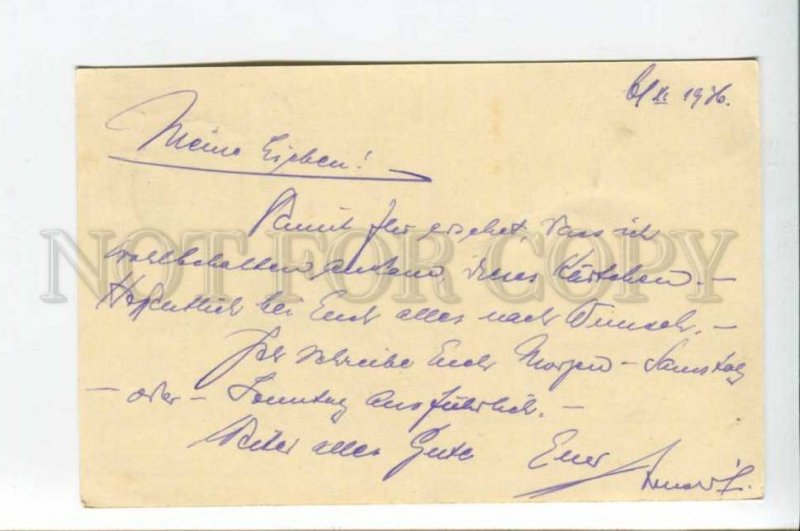 6/XI 1936.
Meine Lieben!
Damit Ihr sehet, dass ich
wohlbehalten ankam, dieses Kärtchen. –
Hoffentlich bei Euch alles nach Wunsch. –
Ich schreibe Euch Morgen – Samstag
– oder – Sonntag ausführlich. –
alles Gute Euer
NOT FOR COPY